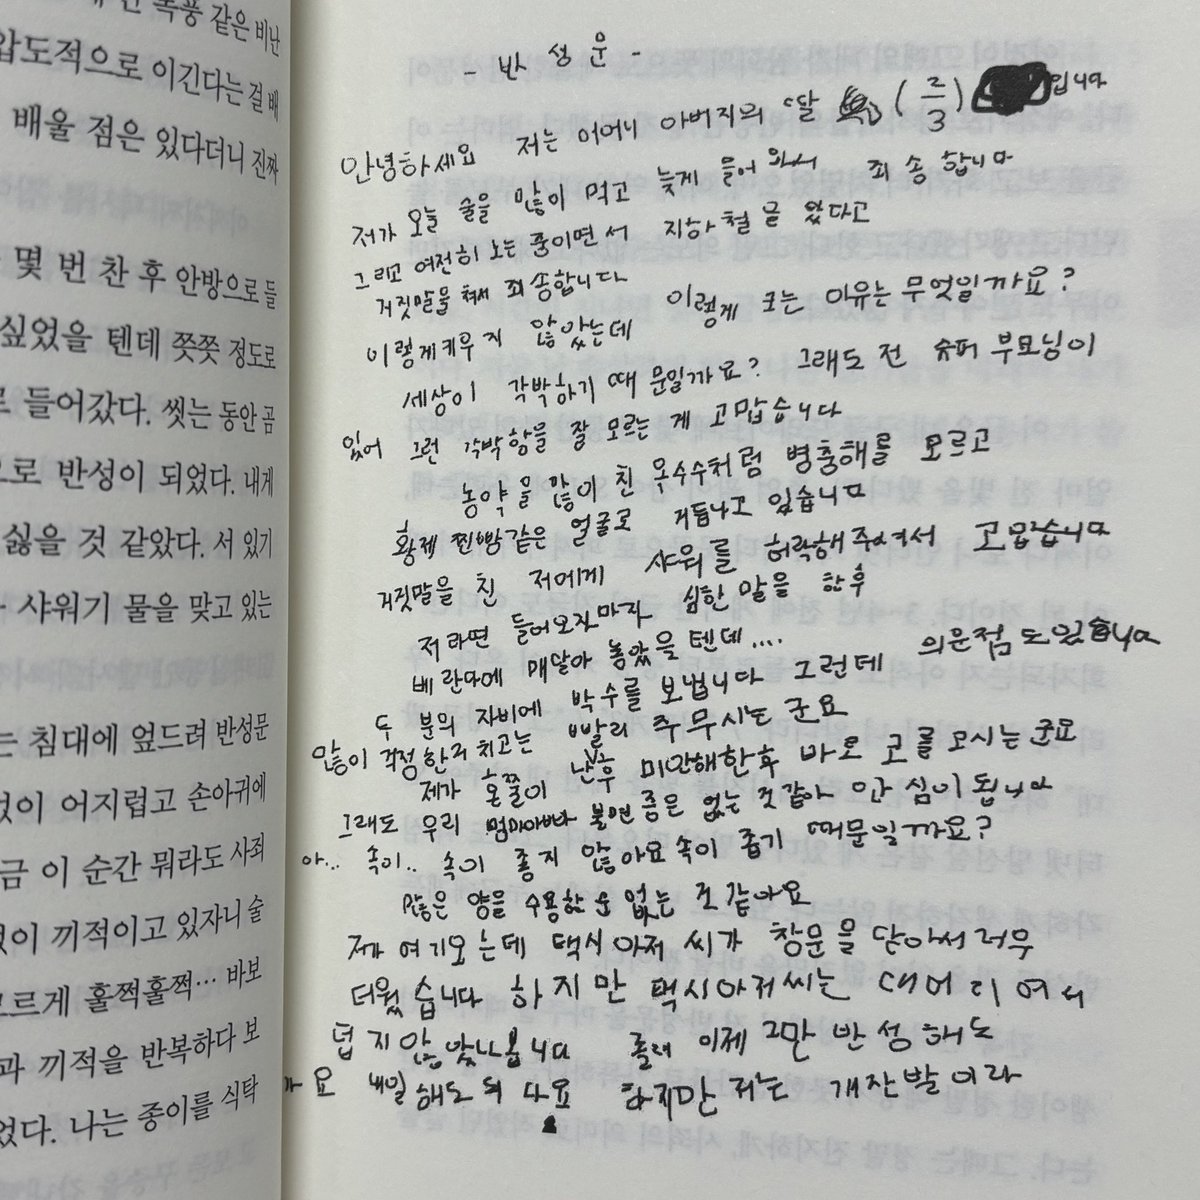 폭풍 같은 비난
압도적으로 이긴다는 걸 배
배울 점은 있다더니 진짜
몇 번 찬 후 안방으로 들
싶었을 텐데 쯧쯧 정도로
들어갔다. 씻는 동안 곰
으로 반성이 되었다. 내게
싫을 것 같았다. 서 있기
샤워기 물을 맞고 있는
는 침대에 엎드려 반성문
없이 어지럽고 손아귀에
금 이 순간 뭐라도 사죄
없이 끼적이고 있자니 술
모르게 훌쩍훌쩍… 바보
과 끼적을 반복하다 보
었다. 나는 종이를 식탁
- 반성문 -
안녕하세요 저는 어머니 아버지의 딸 (2/3) 입니다
저가 오늘 술을 많이 먹고 늦게 들어와서 죄송합니다
그리고 여전히 노는 중이면서 지하철을 탔다고
거짓말을 쳐서 죄송합니다
이렇게 키우지 않았는데 이렇게 크는 이유는 무엇일까요?
세상이 각박하기 때문일까요? 그래도 전 슈퍼 부모님이
있어 그런 각박함을 잘 모르는 게 고맙습니다
농약을 많이 친 옥수수처럼 병충해를 모르고
황제 찐빵같은 얼굴로 거듭나고 있습니다
거짓말을 친 저에게 샤워를 허락해주셔서 고맙습니다
저라면 들어오자마자 심한 말을 한 후
베란다에 매달아 놓았을 텐데....
두 분의 자비에 박수를 보냅니다 그런데 의문점도 있습니다
많이 걱정한거 치고는 빨리 주무시는군요
제가 혼쭐이 난 후 미안해한후 바로 코를 고시는군요
그래도 우리 엄마아빠 불면증은 없는 것 같아 안심이 됩니다
아.. 속이.. 속이 좋지 않아요 속이 좁기 때문일까요?
많은 양을 수용할 순 없는 것 같아요
제가 여기오는데 택시아저씨가 창문을 닫아서 너무
더웠습니다 하지만 택시아저씨는 대머리여서
덥지 않았나봅니다 졸려 이제 그만 반성해도
가요 내일 해도 되나요 하지만 저는 개잔발이라